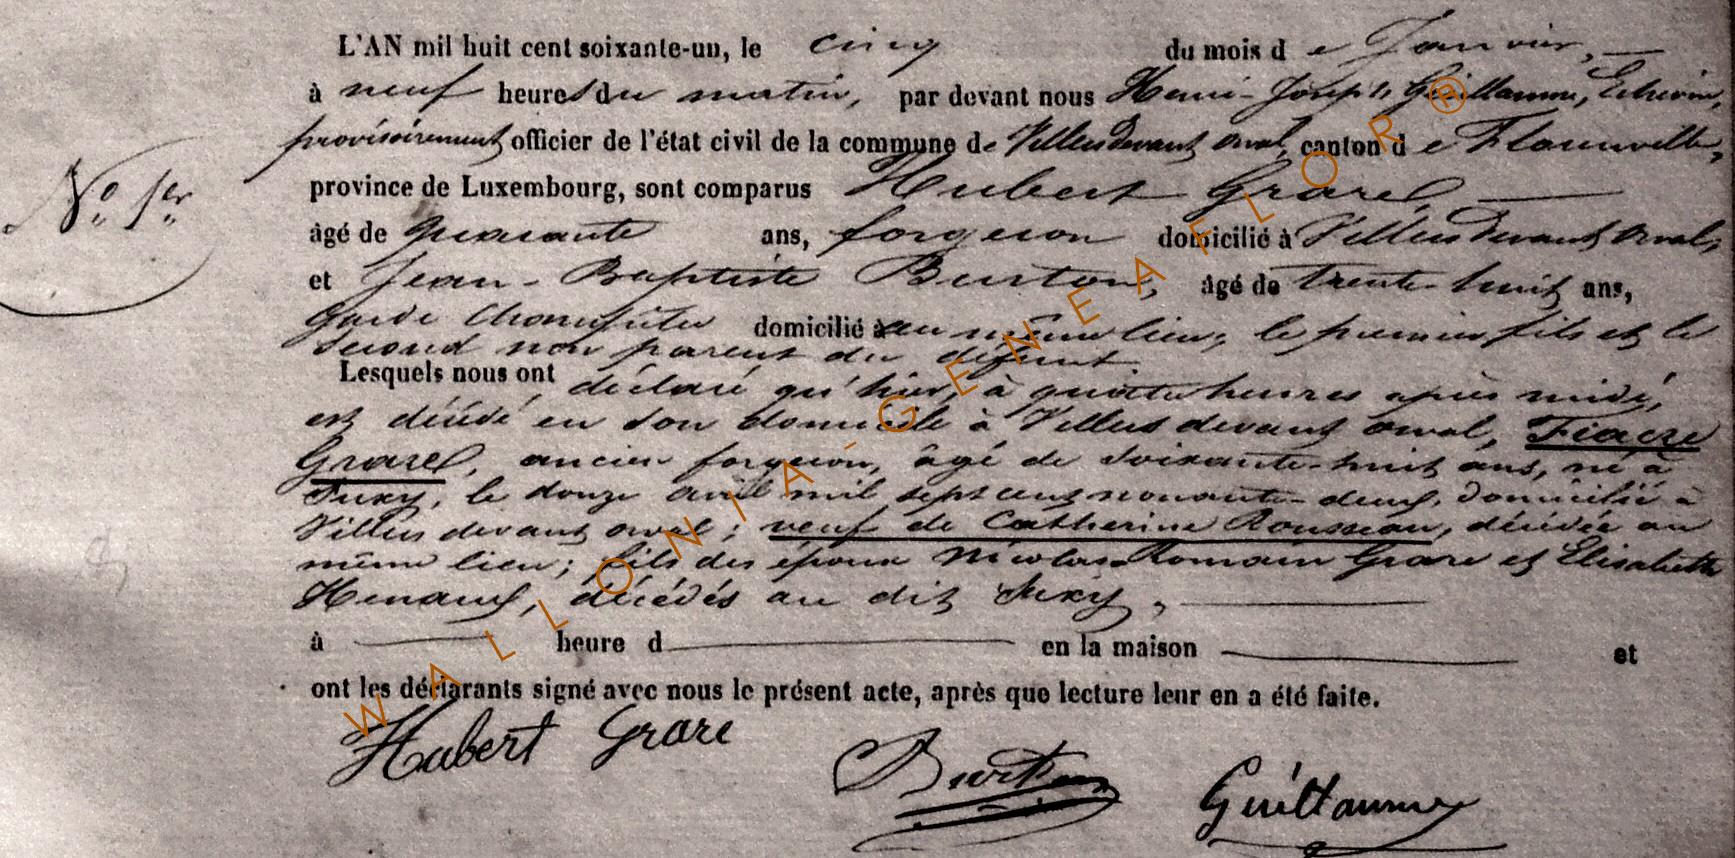 L'AN mil huit cent soixante-un, le cinq du mois de Janvier,
à neuf heures du matin, par devant nous Henri-Joseph Guillaume, Echevin,
N° 1er
provisoirement officier de l'état civil de la commune de Villers devant orval, canton de Florenville,
province de Luxembourg, sont comparus Hubert Grare,
âgé de quarante ans, forgeron domicilié à Villers devant orval,
et Jean-Baptiste Burton, âgé de trente-huit ans,
Garde Champêtre domicilié au même lieu, le premier fils et le
second non parent du défunt.
Lesquels nous ont déclaré qu'hier, à quatre heures après midi,
est décédé en son domicile à Villers devant orval, Fiacre
Grare, ancien forgeron, âgé de soixante-huit ans, né à
Suxy, le douze avril mil sept cent nonante-deux, domicilié à
Villers devant orval; veuf de Catherine Rousseau, décédée au
même lieu; fils des époux Nicolas-Romain Grare et Elisabeth
décédés au dit Suxy,
à heure d en la maison et
ont les déclarants signé avec nous le présent acte, après que lecture leur en a été faite.
Hubert Grare
Burton
Guillaume
WALLONIA-GENEAFLOR®